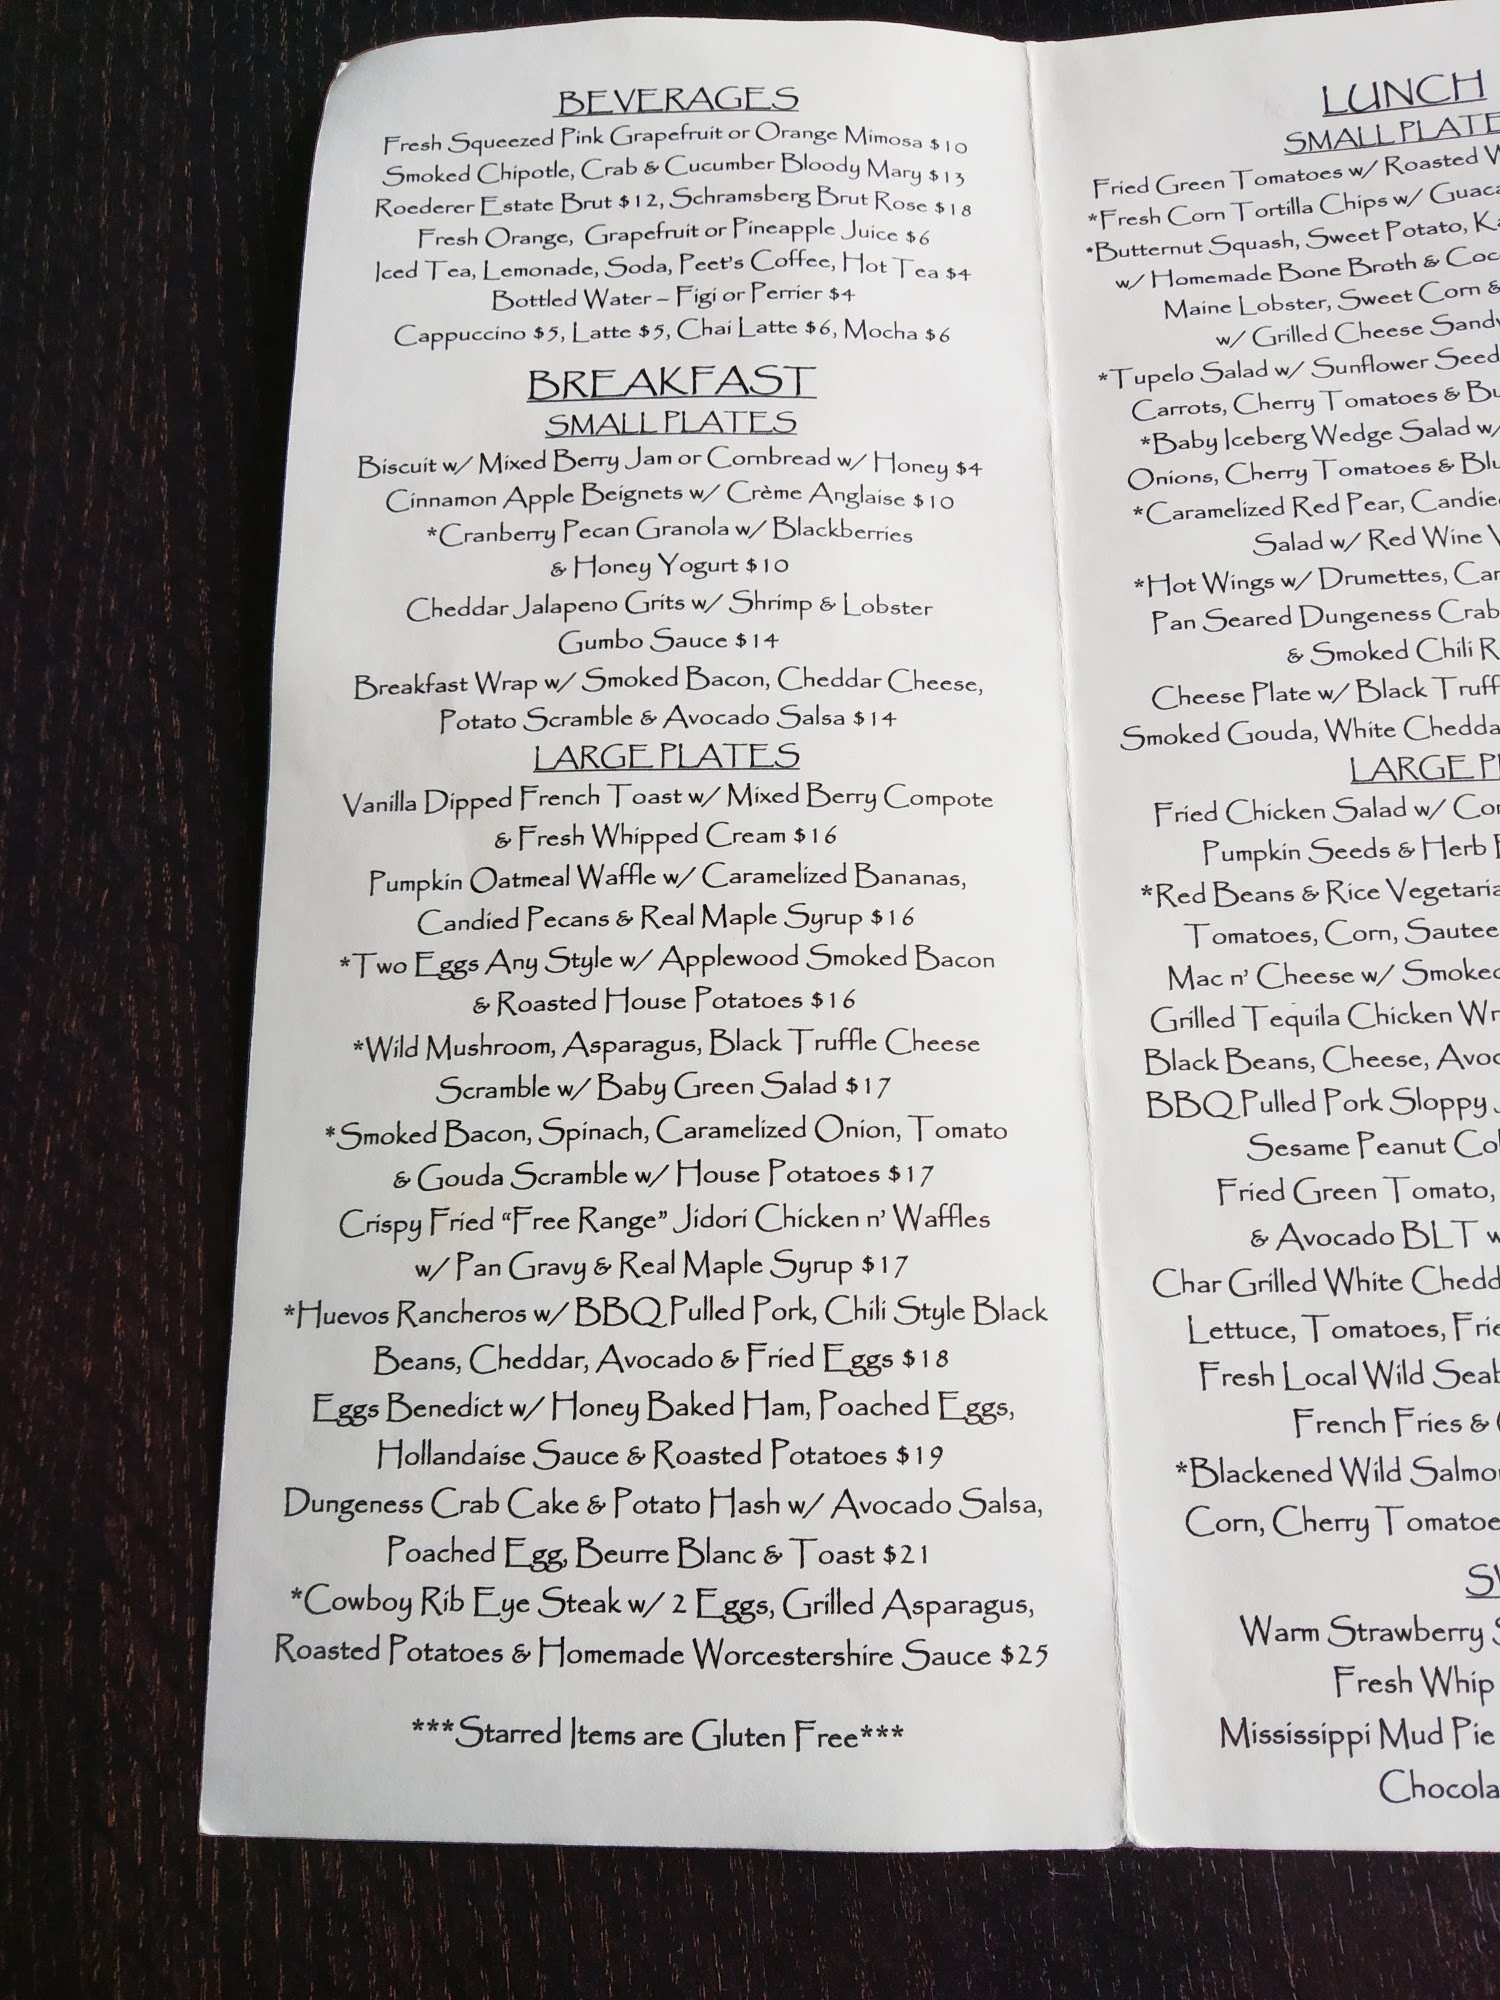 BEVERAGES
Fresh Squeezed Pink Grapefruit or Orange Mimosa $10
Smoked Chipotle, Crab & Cucumber Bloody Mary $13
Roederer Estate Brut $12, Schramsberg Brut Rose $18
Fresh Orange, Grapefruit or Pineapple Juice $6
Iced Tea, Lemonade, Soda, Peet's Coffee, Hot Tea $4
Bottled Water – Figi or Perrier $4
Cappuccino $5, Latte $5, Chai Latte $6, Mocha $6
BREAKFAST
SMALL PLATES
Biscuit w/ Mixed Berry Jam or Cornbread w/ Honey $4
Cinnamon Apple Beignets w/ Crème Anglaise $10
*Cranberry Pecan Granola w/ Blackberries
& Honey Yogurt $10
Cheddar Jalapeno Grits w/ Shrimp & Lobster
Gumbo Sauce $14
Breakfast Wrap w/ Smoked Bacon, Cheddar Cheese,
Potato Scramble & Avocado Salsa $14
LARGE PLATES
Vanilla Dipped French Toast w/ Mixed Berry Compote
& Fresh Whipped Cream $16
Pumpkin Oatmeal Waffle w/ Caramelized Bananas,
Candied Pecans & Real Maple Syrup $16
*Two Eggs Any Style w/ Applewood Smoked Bacon
& Roasted House Potatoes $16
*Wild Mushroom, Asparagus, Black Truffle Cheese
Scramble w/ Baby Green Salad $17
*Smoked Bacon, Spinach, Caramelized Onion, Tomato
& Gouda Scramble w/ House Potatoes $17
Crispy Fried "Free Range" Jidori Chicken n' Waffles
w/ Pan Gravy & Real Maple Syrup $17
*Huevos Rancheros w/ BBQ Pulled Pork, Chili Style Black
Beans, Cheddar, Avocado & Fried Eggs $18
Eggs Benedict w/ Honey Baked Ham, Poached Eggs,
Hollandaise Sauce & Roasted Potatoes $19
Dungeness Crab Cake & Potato Hash w/ Avocado Salsa,
Poached Egg, Beurre Blanc & Toast $21
*Cowboy Rib Eye Steak w/ 2 Eggs, Grilled Asparagus,
Roasted Potatoes & Homemade Worcestershire Sauce $25
***Starred Items are Gluten Free***
LUNCH
SMALL PLATE
Fried Green Tomatoes w/ Roasted
*Fresh Corn Tortilla Chips w/
*Butternut Squash, Sweet Potato,
w/ Homemade Bone Broth &
Maine Lobster, Sweet Corn &
w/ Grilled Cheese
*Tupelo Salad w/ Sunflower Seed
Carrots, Cherry Tomatoes &
*Baby Iceberg Wedge Salad w/
Onions, Cherry Tomatoes &
*Caramelized Red Pear, Candied
Salad w/ Red Wine
*Hot Wings w/ Drumettes,
Pan Seared Dungeness Crab
& Smoked Chili
Cheese Plate w/ Black
Smoked Gouda, White
LARGE
Fried Chicken Salad w/
Pumpkin Seeds & Herb
*Red Beans & Rice
Tomatoes, Corn,
Mac n' Cheese w/
Grilled Tequila Chicken
Black Beans, Cheese,
BBQ Pulled Pork Sloppy
Sesame Peanut
Fried Green Tomato,
& Avocado BLT
Char Grilled White
Lettuce, Tomatoes,
Fresh Local Wild
French Fries &
*Blackened Wild
Corn, Cherry
Warm Strawberry
Fresh Whip
Mississippi Mud Pie